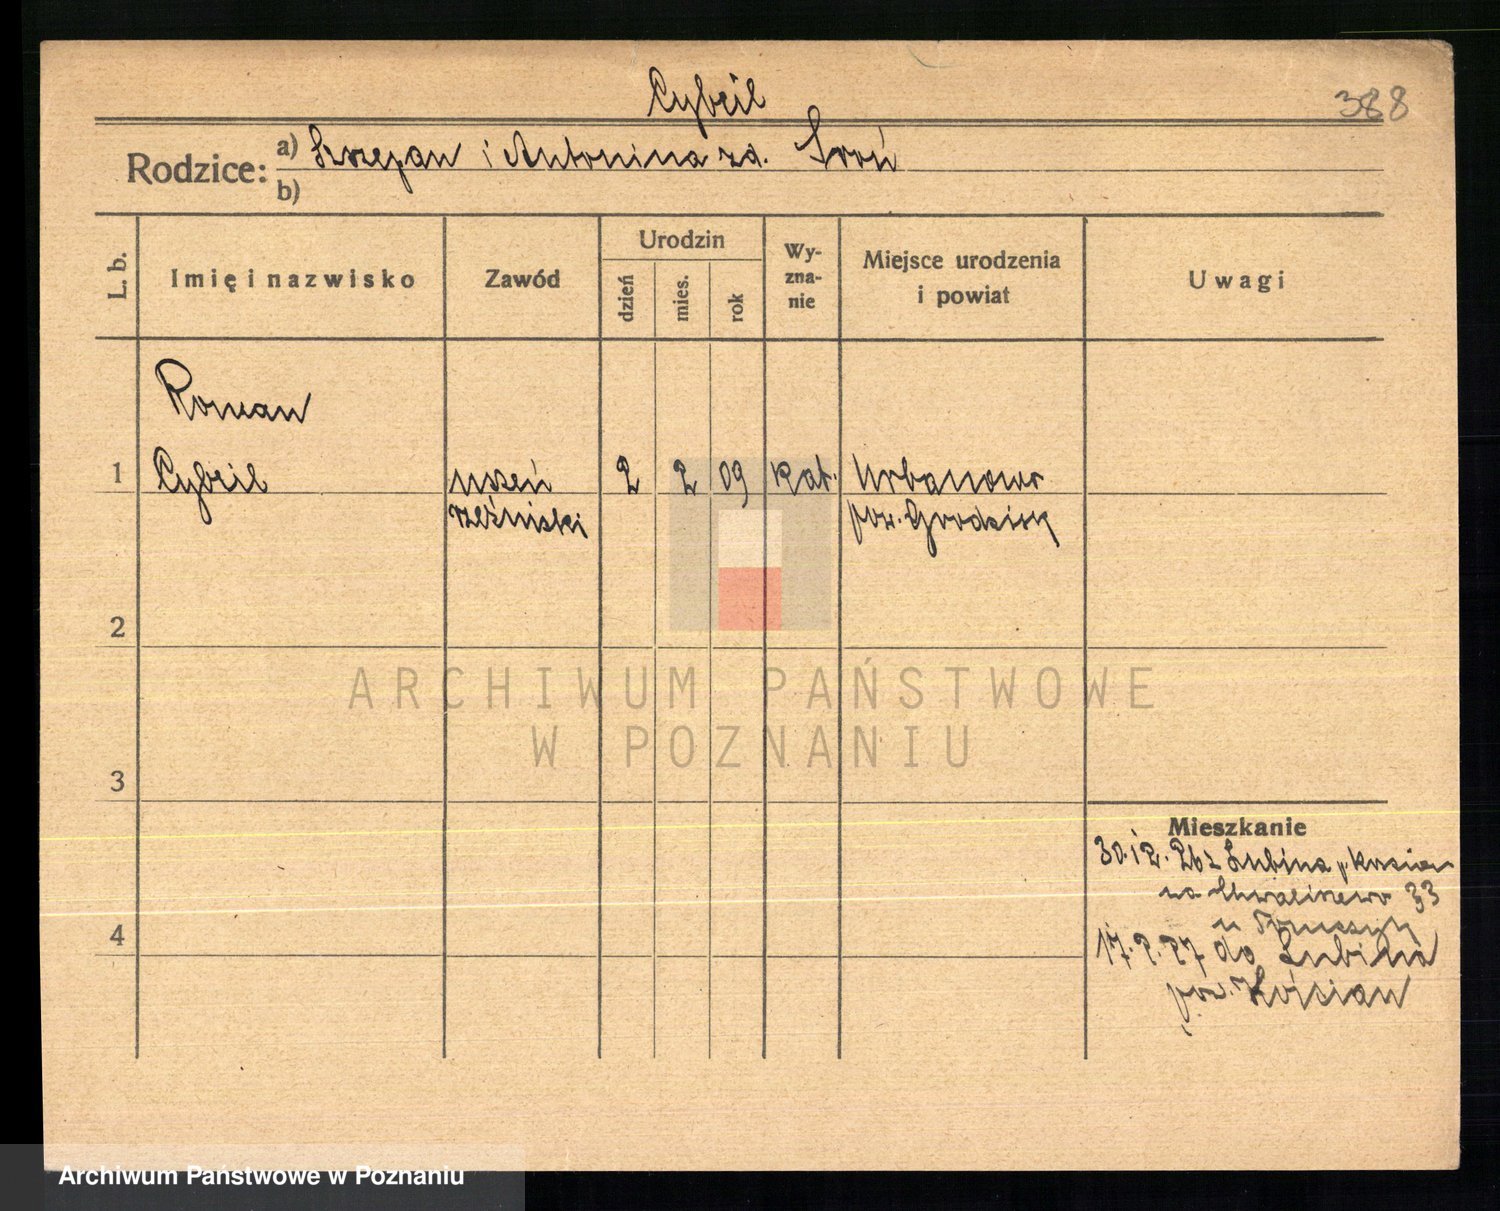 Cybril
388
Rodzice: a) Szczepan i Antonina zd. Sroń
b)
L. b.
Imię i nazwisko
Zawód
Urodzin
dzień
mies.
rok
Wy-
zna-
nie
Miejsce urodzenia
i powiat
Uwagi
Roman
1 Cybril uczeń 2 2 09 kat. Urbanowo
rzeźnicki pow. Grodzisk
2
ARCHIWUM PAŃSTWOWE
W POZNANIU
3
Mieszkanie
30.12.26 z Lubina p. Kościan
na Chwaliszewo 33
4
17.2.27 do Lubina
pow. Kościan
Archiwum Państwowe w Poznaniu